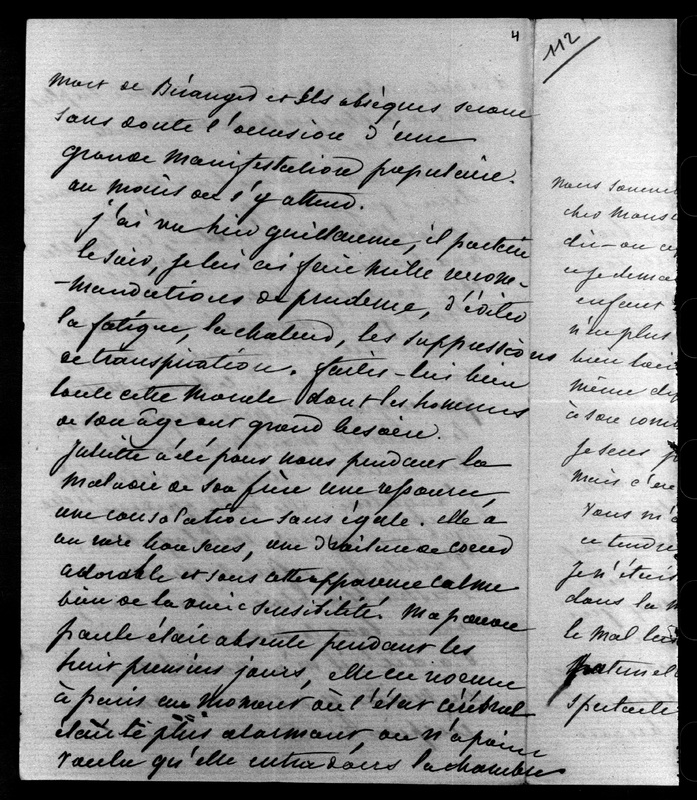 4
mort de Béranger et ses obsèques seront
sans doute l'occasion d'une
grande manifestation populaire.
au moins on s'y attend.
j'ai vu hier guillaume, il partait
le soir, je lui ai fait mille recom-
-mandations de prudence, d'éviter
la fatigue, la chaleur, les suppressions
de transpiration. faites-lui bien
toute cette morale dont les hommes
de son âge ont grand besoin.
Juliette a été pour nous pendant la
maladie de son frère une ressource,
une consolation sans égale. elle a
un rare bon sens, une droiture de coeur
adorable et sous cette apparence calme
bien de la vraie sensibilité. ma pauvre
paule était absente pendant les
huit premiers jours, elle est revenue
à paris au moment où l'état cérébral
était le plus alarmant on n'a point
voulu qu'elle entra dans la chambre
112
nous sommes
cher Mons
dit-on
enfant
n'ai plus
bien loin
même
à son
je sens
mais c'est
vous m'a
ce tendre
Je n'étais
dans la m
le mal
paternel
spectacle